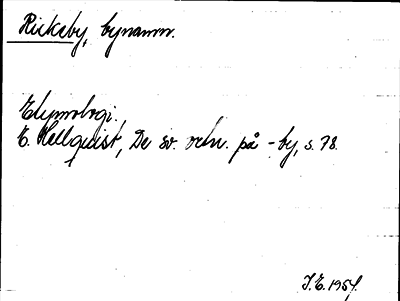 Rickeby, bynamn.
Etymologi.
E. Hellquist, De sv. ortn. på -by, s. 78.
J.E. 1954.